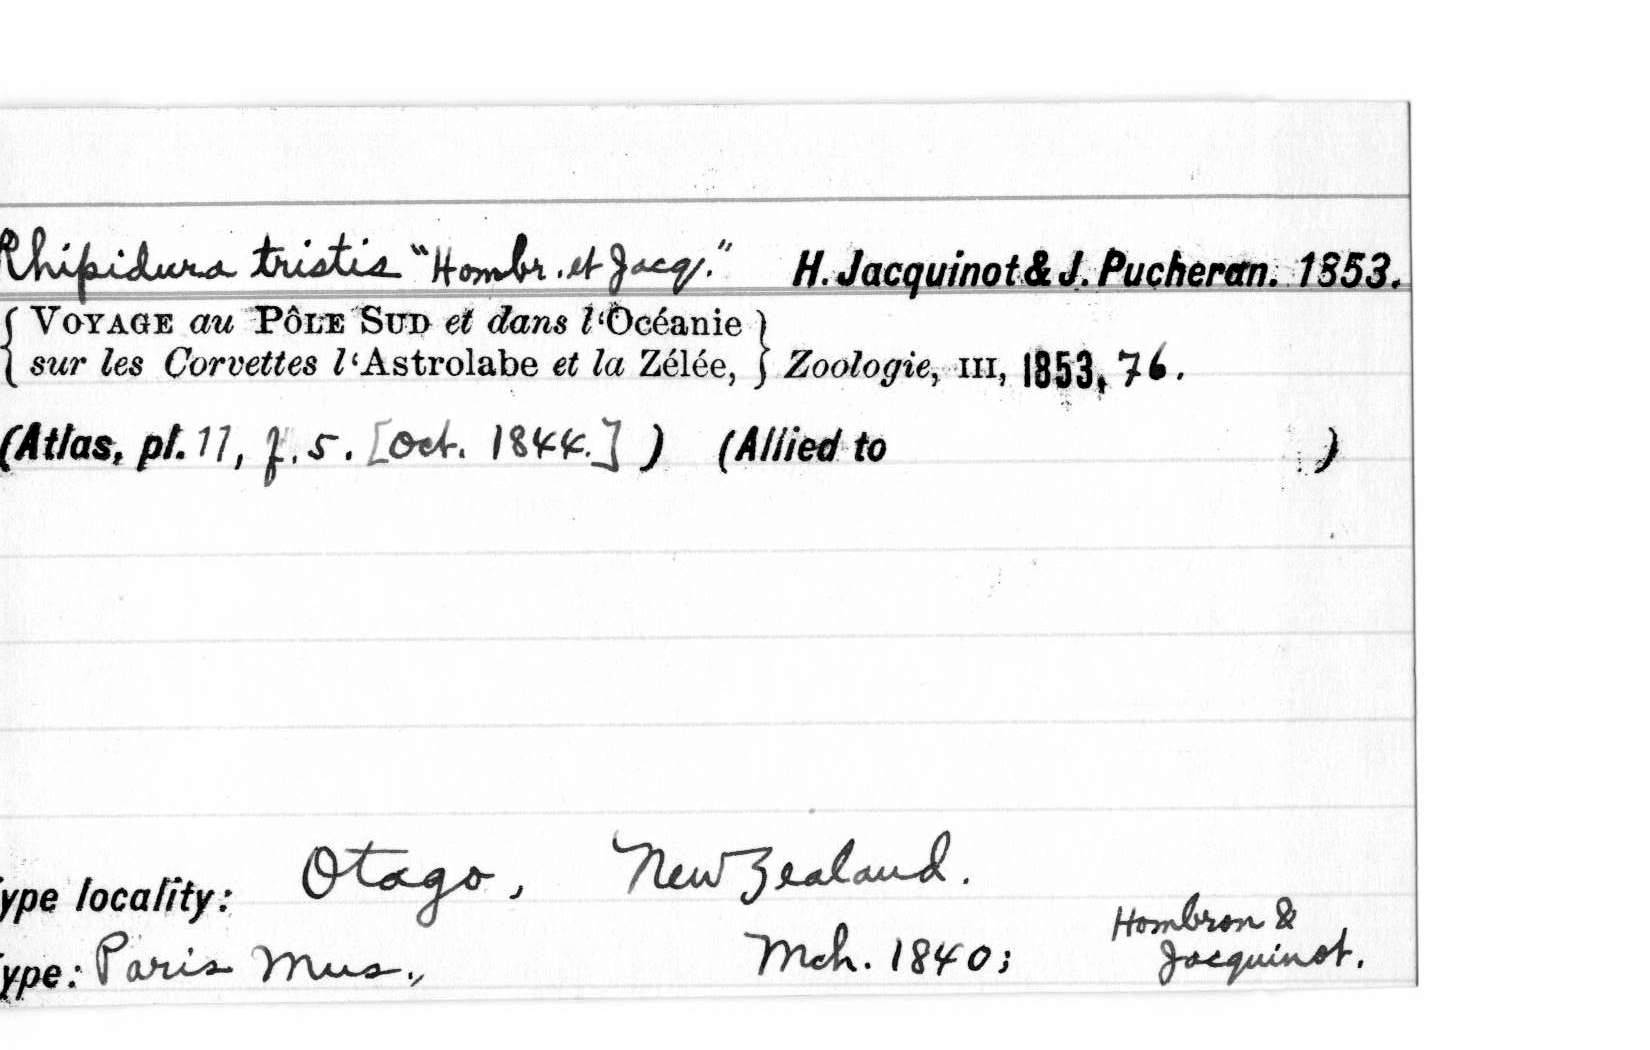 Rhipidura tristis "Hombr. et Jacq." H. Jacquinot & J. Pucheran. 1853.
{ VOYAGE au PÔLE SUD et dans l'Océanie }
{ sur les Corvettes l'Astrolabe et la Zélée, } Zoologie, III, 1853, 76.
(Atlas, pl. 11, f. 5. [Oct. 1844.] ) (Allied to )
ype locality: Otago, New Zealand.
Hombron &
ype: Paris Mus., Mch. 1840; Jacquinot.